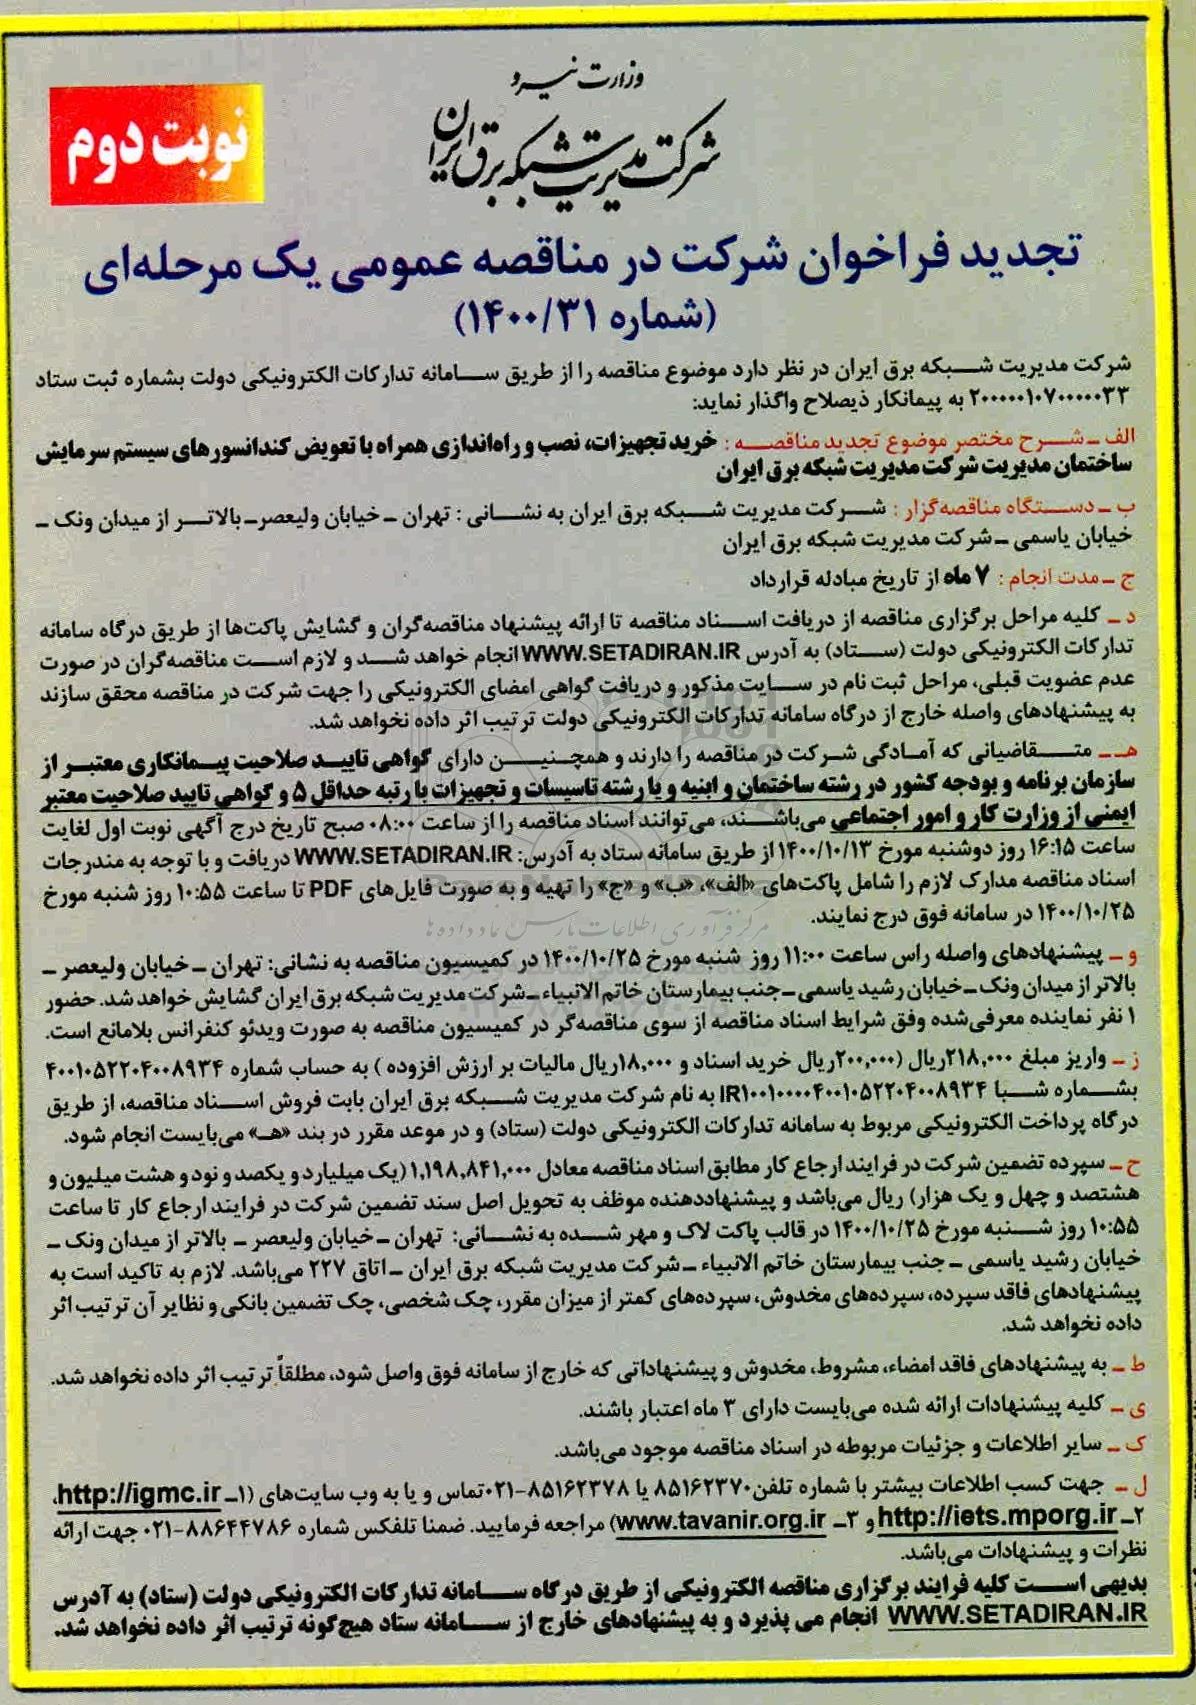 وزارت نیرو
شرکت مدیریت شبکه برق ایران
نوبت دوم
تجدید فراخوان شرکت در مناقصه عمومی یک مرحله‌ای
(شماره ۱۴۰۰/۳۱)
شرکت مدیریت شبکه برق ایران در نظر دارد موضوع مناقصه را از طریق سامانه تدارکات الکترونیکی دولت بشماره ثبت ستاد
۲۰۰۰۰۰۱۰۷۰۰۰۰۰۳۳ به پیمانکار ذیصلاح واگذار نماید:
الف ـ شرح مختصر موضوع تجدید مناقصه : خرید تجهیزات، نصب و راه‌اندازی همراه با تعویض کندانسورهای سیستم سرمایش
ساختمان مدیریت شرکت مدیریت شبکه برق ایران
ب ـ دستگاه مناقصه‌گزار : شرکت مدیریت شبکه برق ایران به نشانی : تهران ـ خیابان ولیعصرـ بالاتر از میدان ونک ـ
خیابان یاسمی ـ شرکت مدیریت شبکه برق ایران
ج ـ مدت انجام : ۷ ماه از تاریخ مبادله قرارداد
د ـ کلیه مراحل برگزاری مناقصه از دریافت اسناد مناقصه تا ارائه پیشنهاد مناقصه‌گران و گشایش پاکت‌ها از طریق درگاه سامانه
تدارکات الکترونیکی دولت (ستاد) به آدرس WWW.SETADIRAN.IR انجام خواهد شد و لازم است مناقصه‌گران در صورت
عدم عضویت قبلی، مراحل ثبت نام در سایت مذکور و دریافت گواهی امضای الکترونیکی را جهت شرکت در مناقصه محقق سازند
به پیشنهادهای واصله خارج از درگاه سامانه تدارکات الکترونیکی دولت ترتیب اثر داده نخواهد شد.
هـ ـ متقاضیانی که آمادگی شرکت در مناقصه را دارند و همچنین دارای گواهی تایید صلاحیت پیمانکاری معتبر از
سازمان برنامه و بودجه کشور در رشته ساختمان و ابنیه و یا رشته تاسیسات و تجهیزات با رتبه حداقل ۵ و گواهی تایید صلاحیت معتبر
ایمنی از وزارت کار و امور اجتماعی می‌باشند، می‌توانند اسناد مناقصه را از ساعت ۰۸:۰۰ صبح تاریخ درج آگهی نوبت اول لغایت
ساعت ۱۶:۱۵ روز دوشنبه مورخ ۱۴۰۰/۱۰/۱۳ از طریق سامانه ستاد به آدرس: WWW.SETADIRAN.IR دریافت و با توجه به مندرجات
اسناد مناقصه مدارک لازم را شامل پاکت‌های «الف»، «ب» و «ج» را تهیه و به صورت فایل‌های PDF تا ساعت ۱۰:۵۵ روز شنبه مورخ
۱۴۰۰/۱۰/۲۵ در سامانه فوق درج نمایند.
مرکز فرآوری اطلاعات پارس نماد داده‌ها
و ـ پیشنهادهای واصله راس ساعت ۱۱:۰۰ روز شنبه مورخ ۱۴۰۰/۱۰/۲۵ در کمیسیون مناقصه به نشانی: تهران ـ خیابان ولیعصر ـ
بالاتر از میدان ونک ـ خیابان رشید یاسمی ـ جنب بیمارستان خاتم الانبیاء ـ شرکت مدیریت شبکه برق ایران گشایش خواهد شد. حضور
۱ نفر نماینده معرفی‌شده وفق شرایط اسناد مناقصه از سوی مناقصه‌گر در کمیسیون مناقصه به صورت ویدئو کنفرانس بلامانع است.
ز ـ واریز مبلغ ۲۱۸,۰۰۰ریال (۲۰۰,۰۰۰ریال خرید اسناد و ۱۸,۰۰۰ریال مالیات بر ارزش افزوده ) به حساب شماره ۴۰۰۱۰۵۲۲۰۴۰۰۸۹۳۴
بشماره شبا IR۱۰۰۱۰۰۰۰۴۰۰۱۰۵۲۲۰۴۰۰۸۹۳۴ به نام شرکت مدیریت شبکه برق ایران بابت فروش اسناد مناقصه، از طریق
درگاه پرداخت الکترونیکی مربوط به سامانه تدارکات الکترونیکی دولت (ستاد) و در موعد مقرر در بند «هـ» می‌بایست انجام شود.
ح ـ سپرده تضمین شرکت در فرایند ارجاع کار مطابق اسناد مناقصه معادل ۱,۱۹۸,۸۴۱,۰۰۰ (یک میلیارد و یکصد و نود و هشت میلیون و
هشتصد و چهل و یک هزار) ریال می‌باشد و پیشنهاددهنده موظف به تحویل اصل سند تضمین شرکت در فرایند ارجاع کار تا ساعت
۱۰:۵۵ روز شنبه مورخ ۱۴۰۰/۱۰/۲۵ در قالب پاکت لاک و مهر شده به نشانی: تهران ـ خیابان ولیعصر ـ بالاتر از میدان ونک ـ
خیابان رشید یاسمی ـ جنب بیمارستان خاتم الانبیاء ـ شرکت مدیریت شبکه برق ایران ـ اتاق ۲۲۷ می‌باشد. لازم به تاکید است به
پیشنهادهای فاقد سپرده، سپرده‌های مخدوش، سپرده‌های کمتر از میزان مقرر، چک شخصی، چک تضمین بانکی و نظایر آن ترتیب اثر
داده نخواهد شد.
ط ـ به پیشنهادهای فاقد امضاء، مشروط، مخدوش و پیشنهاداتی که خارج از سامانه فوق واصل شود، مطلقاً ترتیب اثر داده نخواهد شد.
ی ـ کلیه پیشنهادات ارائه شده می‌بایست دارای ۳ ماه اعتبار باشند.
ک ـ سایر اطلاعات و جزئیات مربوطه در اسناد مناقصه موجود می‌باشد.
ل ـ جهت کسب اطلاعات بیشتر با شماره تلفن ۸۵۱۶۲۳۷۰ یا ۸۵۱۶۲۳۷۸-۰۲۱ تماس و یا به وب سایت‌های (۱ـ http://igmc.ir،
۲ـ http://iets.mporg.ir و ۳ـ www.tavanir.org.ir) مراجعه فرمایید. ضمنا تلفکس شماره ۸۸۶۴۴۷۸۶-۰۲۱ جهت ارائه
نظرات و پیشنهادات می‌باشد.
بدیهی است کلیه فرایند برگزاری مناقصه الکترونیکی از طریق درگاه سامانه تدارکات الکترونیکی دولت (ستاد) به آدرس
WWW.SETADIRAN.IR انجام می پذیرد و به پیشنهادهای خارج از سامانه ستاد هیچ‌گونه ترتیب اثر داده نخواهد شد.